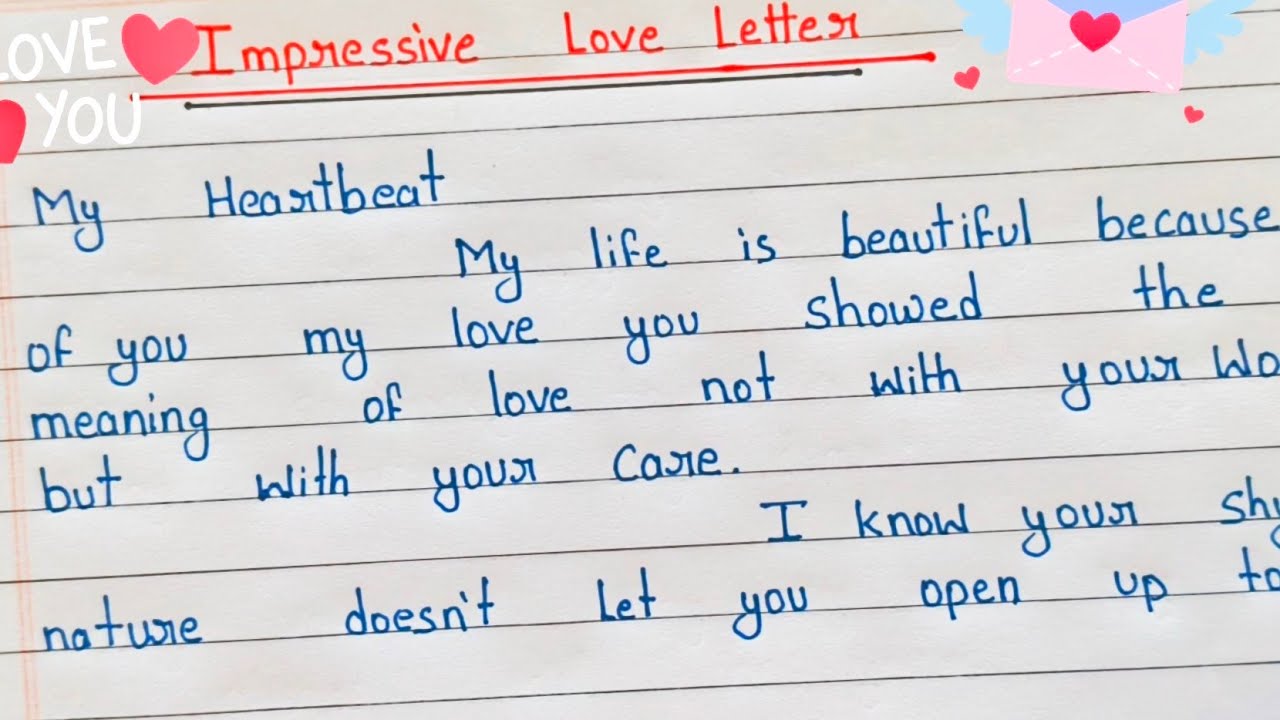 LOVE YOU
Impressive Love Letter
My Heartbeat
My life is beautiful because
of you my love you showed the
meaning of love not with your Wo
but with your Care.
I know your shy
nature doesn't Let you open up to